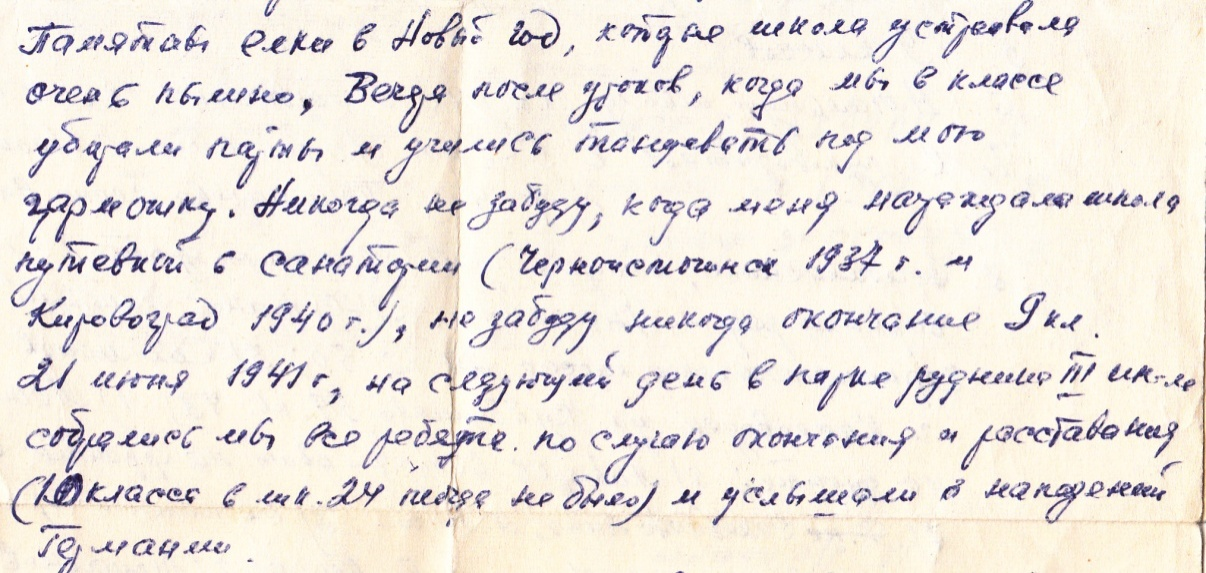 Памятны елки в Новый год, которые школа устраивала
очень пышно, Вечера после уроков, когда мы в классе
убирали парты и учились танцевать под мою
гармошку. Никогда не забуду, когда меня награждала школа
путевкой в санатории (1937 г. и
Кировоград 1940 г.), не забуду никогда окончание 9 кл.
21 июня 1941 г., на следующий день в парке рудника
собрались мы все ребята. по случаю окончания и расставания
(10 класса в шк. 24 тогда не было) и услышали о нападении
Германии.